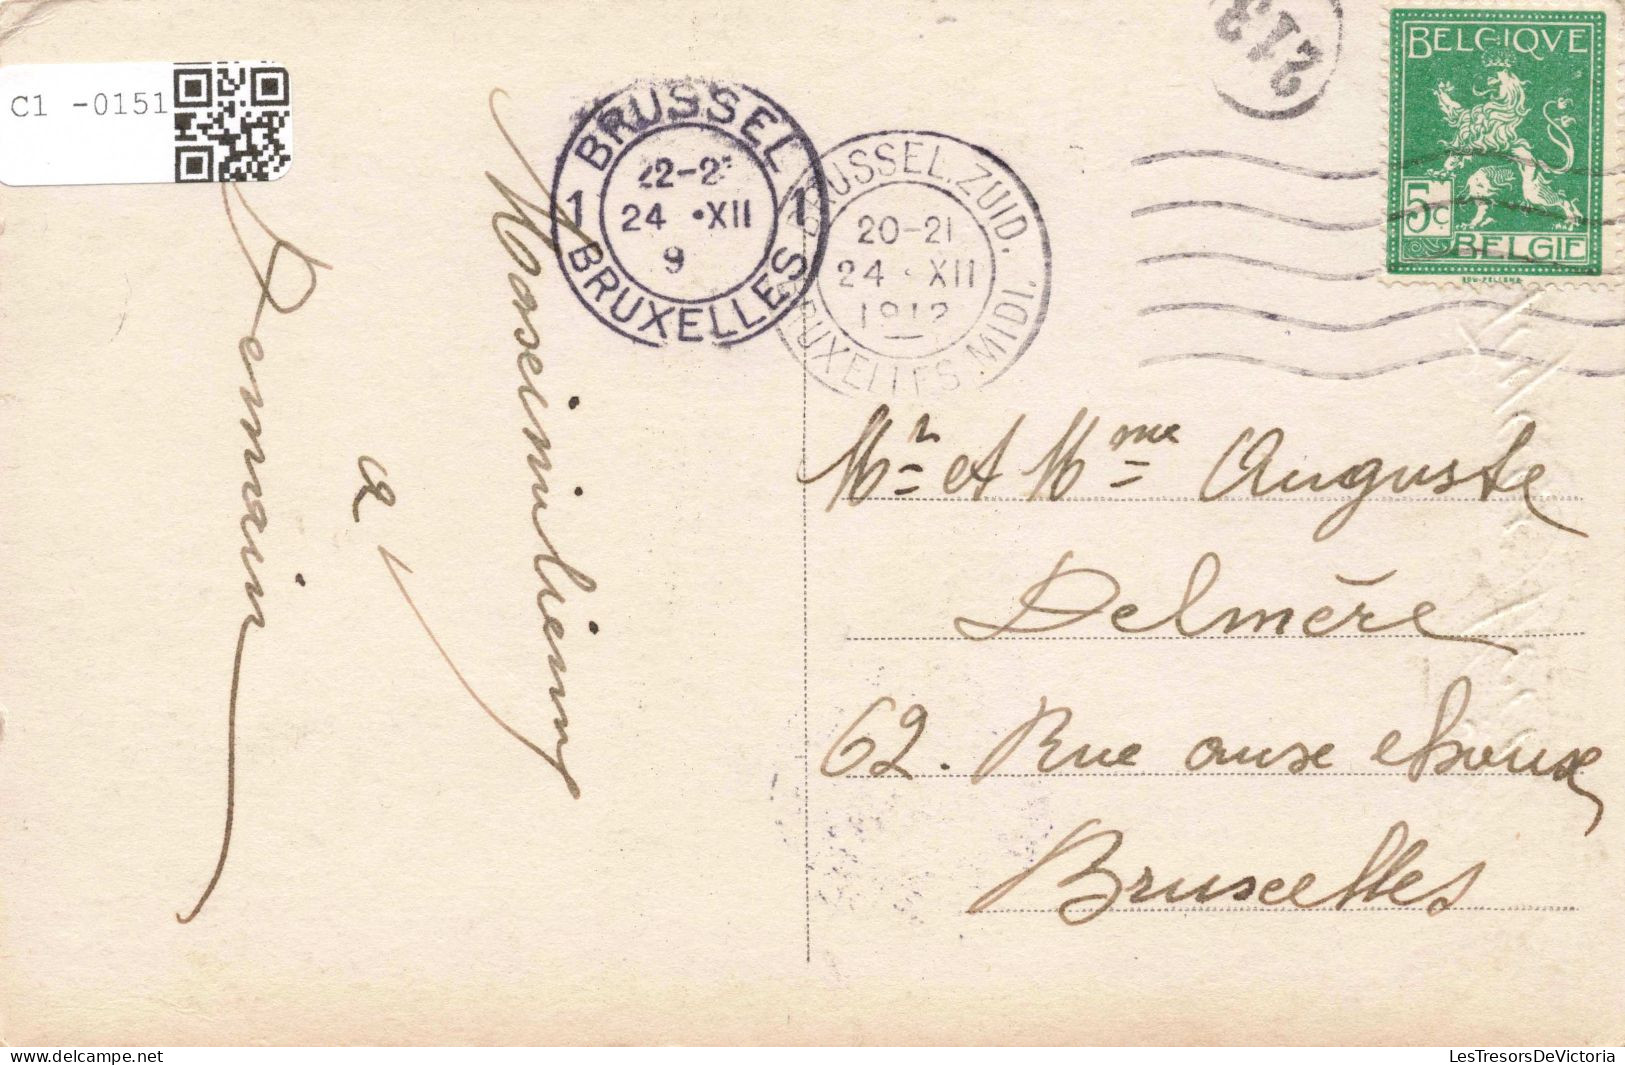 C1 -0151
BRUSSEL
1 1
22-2
24 •XII
9
BRUXELLES
BRUSSEL.ZUID.
20-21
24 • XII
1912
BRUXELLES MIDI.
213
BELGIQVE
5c
BELGIE
Demain
a
Maximilienne
Mr et Mme Auguste
Delmère
62. Rue aux choux
Bruxelles
LesTresorsDeVictoria